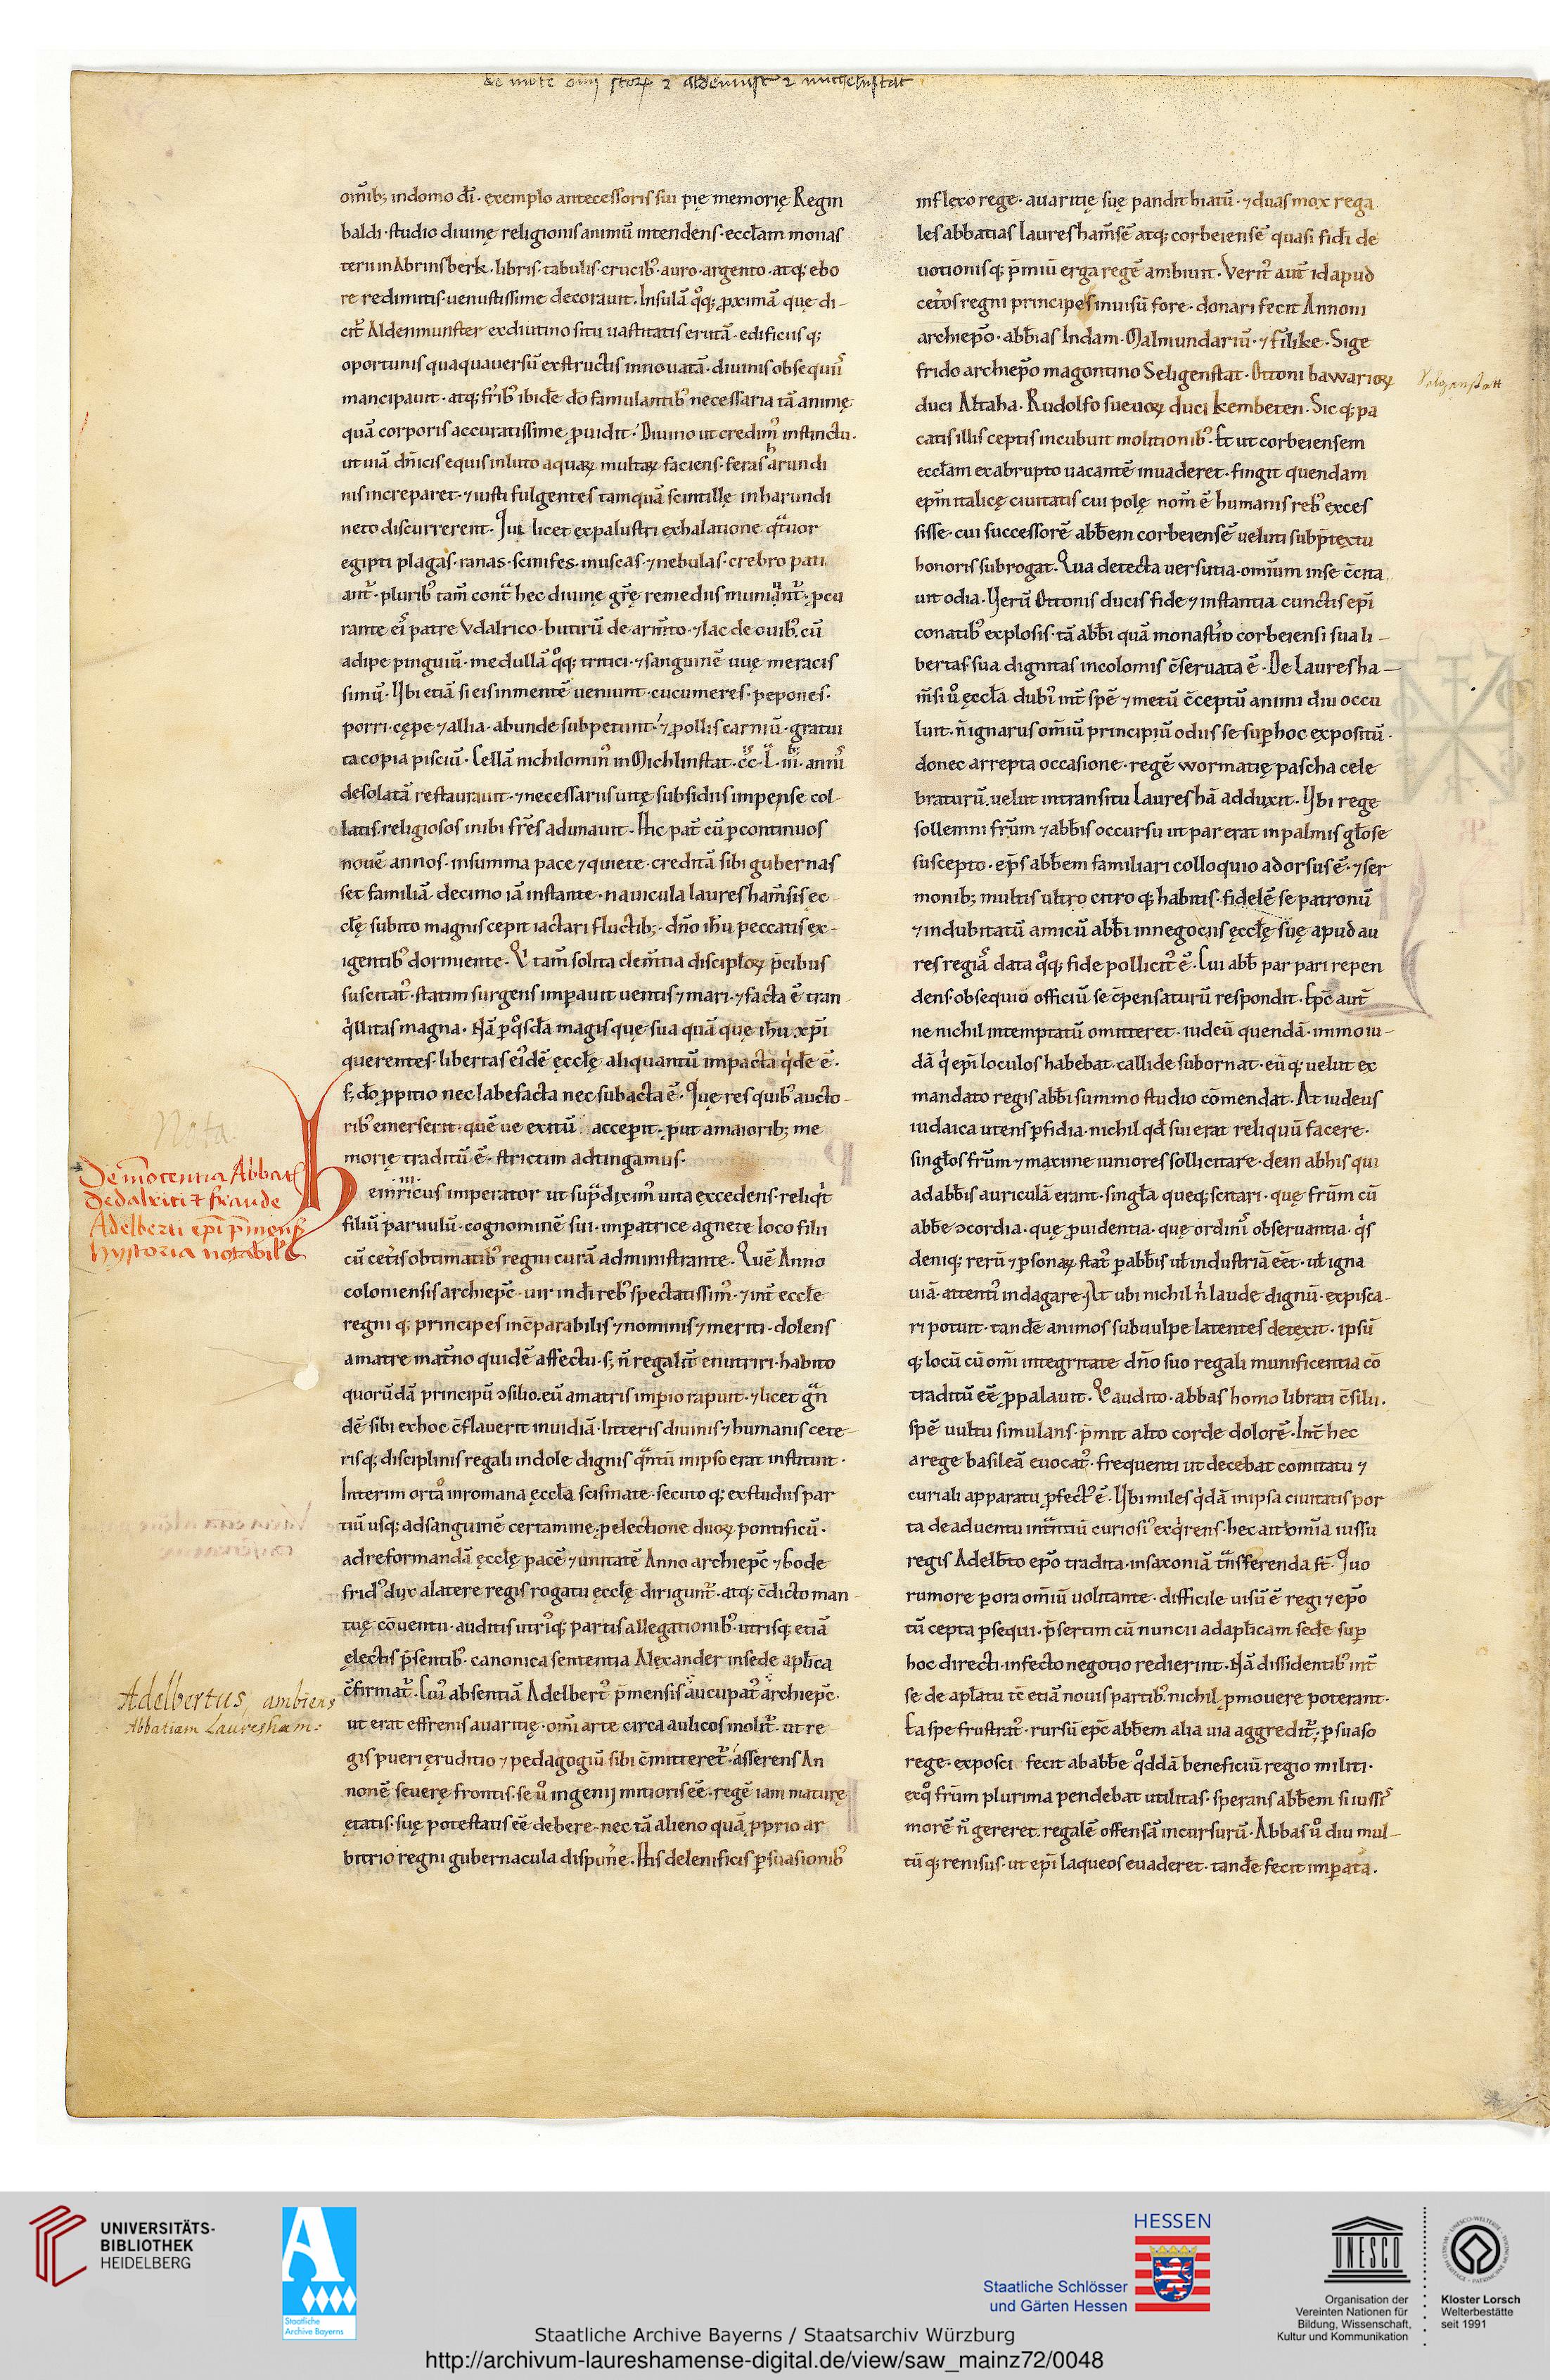 de mōte om̄ s̄coꝝ ⁊ aldemūst ⁊ michelnstat
om̄ib; in domo dī · exemplo antecessoris sui pię memorię Regin
baldi · studio diuinę religionis animū intendens · ecclām monas
terii in Abrinsberk · libris · tabulis · crucib᷒ · auro · argento · atq; ebo
re redimitis · uenustissime decorauit . Insulā qͦq; ꝓximā quę di-
cit᷑ Aldenmunster ex diutino situ uastitatis erutā · edificiis q;
oportunis quaquauersū exstructis innouatā · diuinis obsequiis
mancipauit · atq; fr̄ib᷒ ibidē dō famulantib᷒ necessaria tā animę
quā corporis accuratissime ꝓuidit . Diuino ut credim᷒ instinctu ·
ut uiā dn̄icis equis in luto aquaꝝ multaꝝ faciens · feras arundi
nis increparet · ⁊ iusti fulgentes tamquā scintillę in harundi
neto discurrerent · Qui licet ex palustri exhalatione qͣtuor
egipti plagas · ranas · scinifes · muscas · ⁊ nebulas · crebro pati
ant᷑ · plurib᷒ tam̄ cont̄ hec diuinę gr̄ę remediis muniant᷑ · ꝓcu
rante ei᷒ patre Vdalrico · butirū de arm̄to · ⁊ lac de ouib᷒ · cū
adipe pinguiū · medullā qͦq; tritici · ⁊ sanguinē uuę meracis
simū · Ubi etiā si eis in mentē ueniunt · cucumeres · pepones ·
porri · cępe ⁊ allia · abunde subpetunt · ⁊ ꝓ ollis carniū · gratui
ta copia pisciū · Cellā nichilomin᷒ in Michlinstat · c̄c · l · iii · annis
desolatā restaurauit · ⁊ necessariis uitę subsidiis impense col-
latis · religiosos inibi fr̄es adunauit · Hic pat᷑ cū ꝑ continuos
nouē annos · in summa pace ⁊ quiete · creditā sibi gubernas
set familiā · decimo iā instante · nauicula laureshām̄sis ec-
clę̄ subito magnis cepit iactari fluctib; · dn̄o ih̄u peccatis ex-
igentib᷒ dormiente · Qͥ tam̄ solita clem̄tia discipl̄oꝝ p̄cibus
suscitat᷒ · statim surgens imꝑauit uentis ⁊ mari · ⁊ facta ē tran-
qͥllitas magna · Nā ꝑ qͦsdā magis quę sua quā quę ih̄u xp̄i
querentes · libertas ei᷒dē ęcclę̄ aliquantū impacta qͥdē ē ·
s; dō ꝓpitio nec labefacta nec subacta ē · Quę res quib᷒ aucto-
rib᷒ emerserit · quē ue exitū acceperit · put a maiorib; me
morię traditū ē · strictim adtingamus ·
Heinricus imperator ut sup̄ dixim᷒ uita excedens · reliqͥt
filiū paruulū · cognominē sui · imperatrice agnete loco filii
cū cet̄is obtimatib᷒ regni curā administrante · Quē Anno
coloniensis archiep̄c · uir in dī reb᷒ spectatissim᷒ · ⁊ int̄ ecclē
regni q; principes inc̄parabilis ⁊ nominis ⁊ meriti · dolens
a matre mat̄no quidē affectu · s; n̄ regalit᷑ enutriri · habito
quorūdā principū ɔsilio · eū a matris imꝑio rapuit · ⁊ licet gͣn
dē sibi ex hoc c̄flauerit inuidiā · litteris diuinis ⁊ humanis cete-
risq; disciplinis regali indole dignis qͣntū in ipso erat instituit ·
Interim orto in romana ęccl̄a scismate · secuto q; ex studiis par
tiū usq; ad sanguinē certamine · ꝑ electione duoꝝ pontificū ·
ad reformandā ęcclę pacē ⁊ unitatē Anno archiep̄c ⁊ Gode
frid᷒ dux a latere regis rogatu ęcclę̄ dirigunt᷑ · atq; c̄dicto man-
tuę cōuentu · auditis utri᷒q; partis allegationib᷒ · utrisq; etiā
electis p̄sentib᷒ · canonica sententia Alexander in sede apl̄ica
c̄firmat᷑ · Cui᷒ absentiā Adelbert᷒ p̄mensis aucupat᷒ archiep̄c ·
ut erat effrenis auaritię · om̄i arte circa aulicos molit᷑ · ut re-
gis pueri ęruditio ⁊ pedagogiū sibi c̄mitteret᷑ · asserens An
nonē seuerę frontis · se u͛o ingenij mitioris eē · regē iam maturę
ętatis · suę potestatis eē debere · nec tā alieno quā ꝓprio ar
bitrio regni gubernacula dispon̄e · His delenificis ꝑsuasionib᷒
inflexo rege · auaritię suę pandit hiatū · ⁊ duas mox rega
les abbatias laureshām̄sē atq; corbeiensē quasi fidī de
uotionisq; p̄miū erga regē ambiuit · Verit᷒ aut̄ id apud
cet̄os regni principes inuisū fore · donari fecit Annoni
archiep̄o · abb̄ias Indam · Malmundariū · ⁊ filike · Sige
frido archiep̄o magontino Seligenstat · Ottoni bawarioꝝ
duci Altaha · Rudolfo sueuoꝝ duci kembeten · Sic q; pa
catis illis ceptis incubuit molitionib᷒ · Et ut corbeiensem
ecclām ex abrupto uacantē inuaderet · fingit quendam
ep̄m italicę ciuitatis cui polę nom̄ ē humanis reb᷒ exces
sisse · cui successorē abb̄em corbeiensē ueluti sub p̄textu
honoris subrogat · Qua detecta uersutia · omīum in se c̄cita
uit odia · Uerū Ottonis ducis fide ⁊ instantia cunctis ep̄i
conatib᷒ explosis · tā abb̄i quā monast̄io corbeiensi sua li-
bertas · sua dignitas incolomis c̄seruata ē · De Lauresha-
m̄si u͛o ęccl̄a dubi᷒ int̄ spē ⁊ metū c̄ceptū animi diu occu
luit · n̄ ignarus om̄iū principiū odiis se suꝑ hoc expositū ·
donec arrepta occasione · regē wormatię pascha cele
braturū · uelut in transitu Laureshā adduxit · Ubi rege
sollemni fr̄um ⁊ abb̄is occursu ut par erat in palmis gl̄ose
suscepto · ep̄s abb̄em familiari colloquio adorsus ē · ⁊ ser
monib; multis ultro citro q; habitis · fidelē se patronū
⁊ indubitatū amicū abb̄i in negociis ęcclę̄ suę apud au
res regias data qͦq; fide pollicit᷒ ē · Cui abb̄ par pari repen
dens · obsequio officiū se c̄pensaturū respondit · Ep̄c aut̄
ne nichil intemptatū omitteret · iudeū quendā · immo iu-
dā qͥ ep̄i loculos habebat · callide subornat · eūq; uelut ex
mandato regis abb̄i summo studio cōmendat · At iudeus
iudaica utens ꝑfidia · nichil qd̄ sui erat reliquū facere ·
singl̄os fr̄um ⁊ maxime iuniores sollicitare · dein ab his qui
ad abb̄is auriculā erant · singl̄a queq; scitari · quę fr̄um cū
abb̄e ɔcordia · quę ꝓuidentia · quę ordinis obseruantia · qͥs
deniq; rerū ⁊ ꝑsonaꝝ stat᷒ ꝑ abb̄is ul̄ industriā eēt · ul̄ igna
uiā · attenti᷒ indagare · At ubi nichil n̄ laude dignū · expisca-
ri potuit · tandē animos sub uulpe latentes detexit · ipsū
q; locū cū om̄i integritate dn̄o suo regali munificentia cō
traditū eē ꝓpalauit · Qͦ audito · abbas homo librati c̄silii ·
spē uultu simulans · p̄mit alto corde dolorē · Int̄ hec
a rege basileā euocat᷒ · frequenti ut decebat comitatu ⁊
curiali apparatu ꝓfect᷒ ē · Ubi miles qͥdā in ipsa ciuitatis por
ta de aduentu intͣntiū curiosi᷒ exqͥrens · hec ait om̄ia iussu
regis Adelb̄to ep̄o tradita · in saxoniā tͣnsferenda s̄t · Quo
rumore ꝑ ora om̄iū uolitante · difficile uisū ē regi ⁊ ep̄o
tū cepta ꝑsequi · p̄sertim cū nuncii ad apl̄icam sedē suꝑ
hoc directi · infecto negotio redierint · Nā dissidentib᷒ int̄
se de apl̄atu tc̄ etiā nouis partib᷒ · nichil ꝓmouere poterant ·
Ea spe frustrat᷒ · rursū ep̄c abb̄em alia uia aggredit᷑ · ꝑsuaso
rege · exposci fecit ab abb̄e qͦddā beneficiū regio militi ·
ex qͦ fr̄um plurima pendebat utilitas · sperans abb̄em si iussis
morē n̄ gereret · regalē offensā incursurū · Abbas u͛o diu mul-
tū q; renisus · ut ep̄i laqueos euaderet · tandē fecit imꝑata .
Nota
De īnocentia Abbatis
Vdalrici ⁊ fraude
Adelberti ep̄i p̄mensis
hystoria notabilis
Adelbertus, ambiens
Abbatiam Lauresham:
Selgenstatt
UNIVERSITÄTS-
BIBLIOTHEK
HEIDELBERG
Staatliche
Archive Bayerns
HESSEN
Staatliche Schlösser
und Gärten Hessen
UNESCO
Organisation der
Vereinten Nationen für
Bildung, Wissenschaft,
Kultur und Kommunikation
Kloster Lorsch
Welterbestätte
seit 1991
Staatliche Archive Bayerns / Staatsarchiv Würzburg
http://archivum-laureshamense-digital.de/view/saw_mainz72/0048